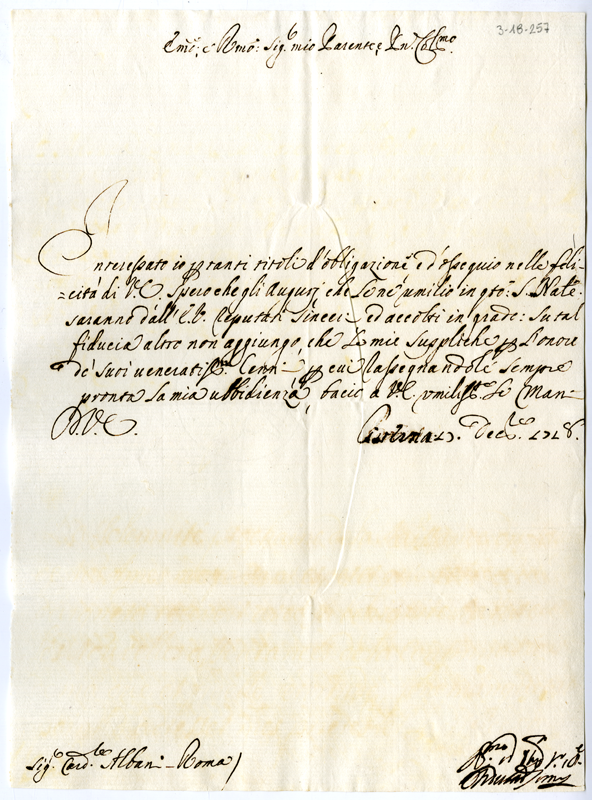 3-18-257
Emo: e Rmo: Sig.r mio Parente, e Pn. Col.mo
Interessato io p tanti titoli d'obligazione, ed'ossequio nelle feli-
=cità di V.E. Spero che gli Augurj che Le ne umilio in qto: S. Nate.
saranno dall'E.V. reputati sinceri, ed accolti in grado: Su tal
fiducia altro non aggiungo, che Le mie suppliche p L'onore
de' suoi veneratis.mi Cenni, p cui rassegnandole sempre
pronta La mia ubbidienza, bacio a V.E. umilis.te Le Man-
D.V.E.
17. Decre. 1718.
Sig.r Card.le Albani - Roma